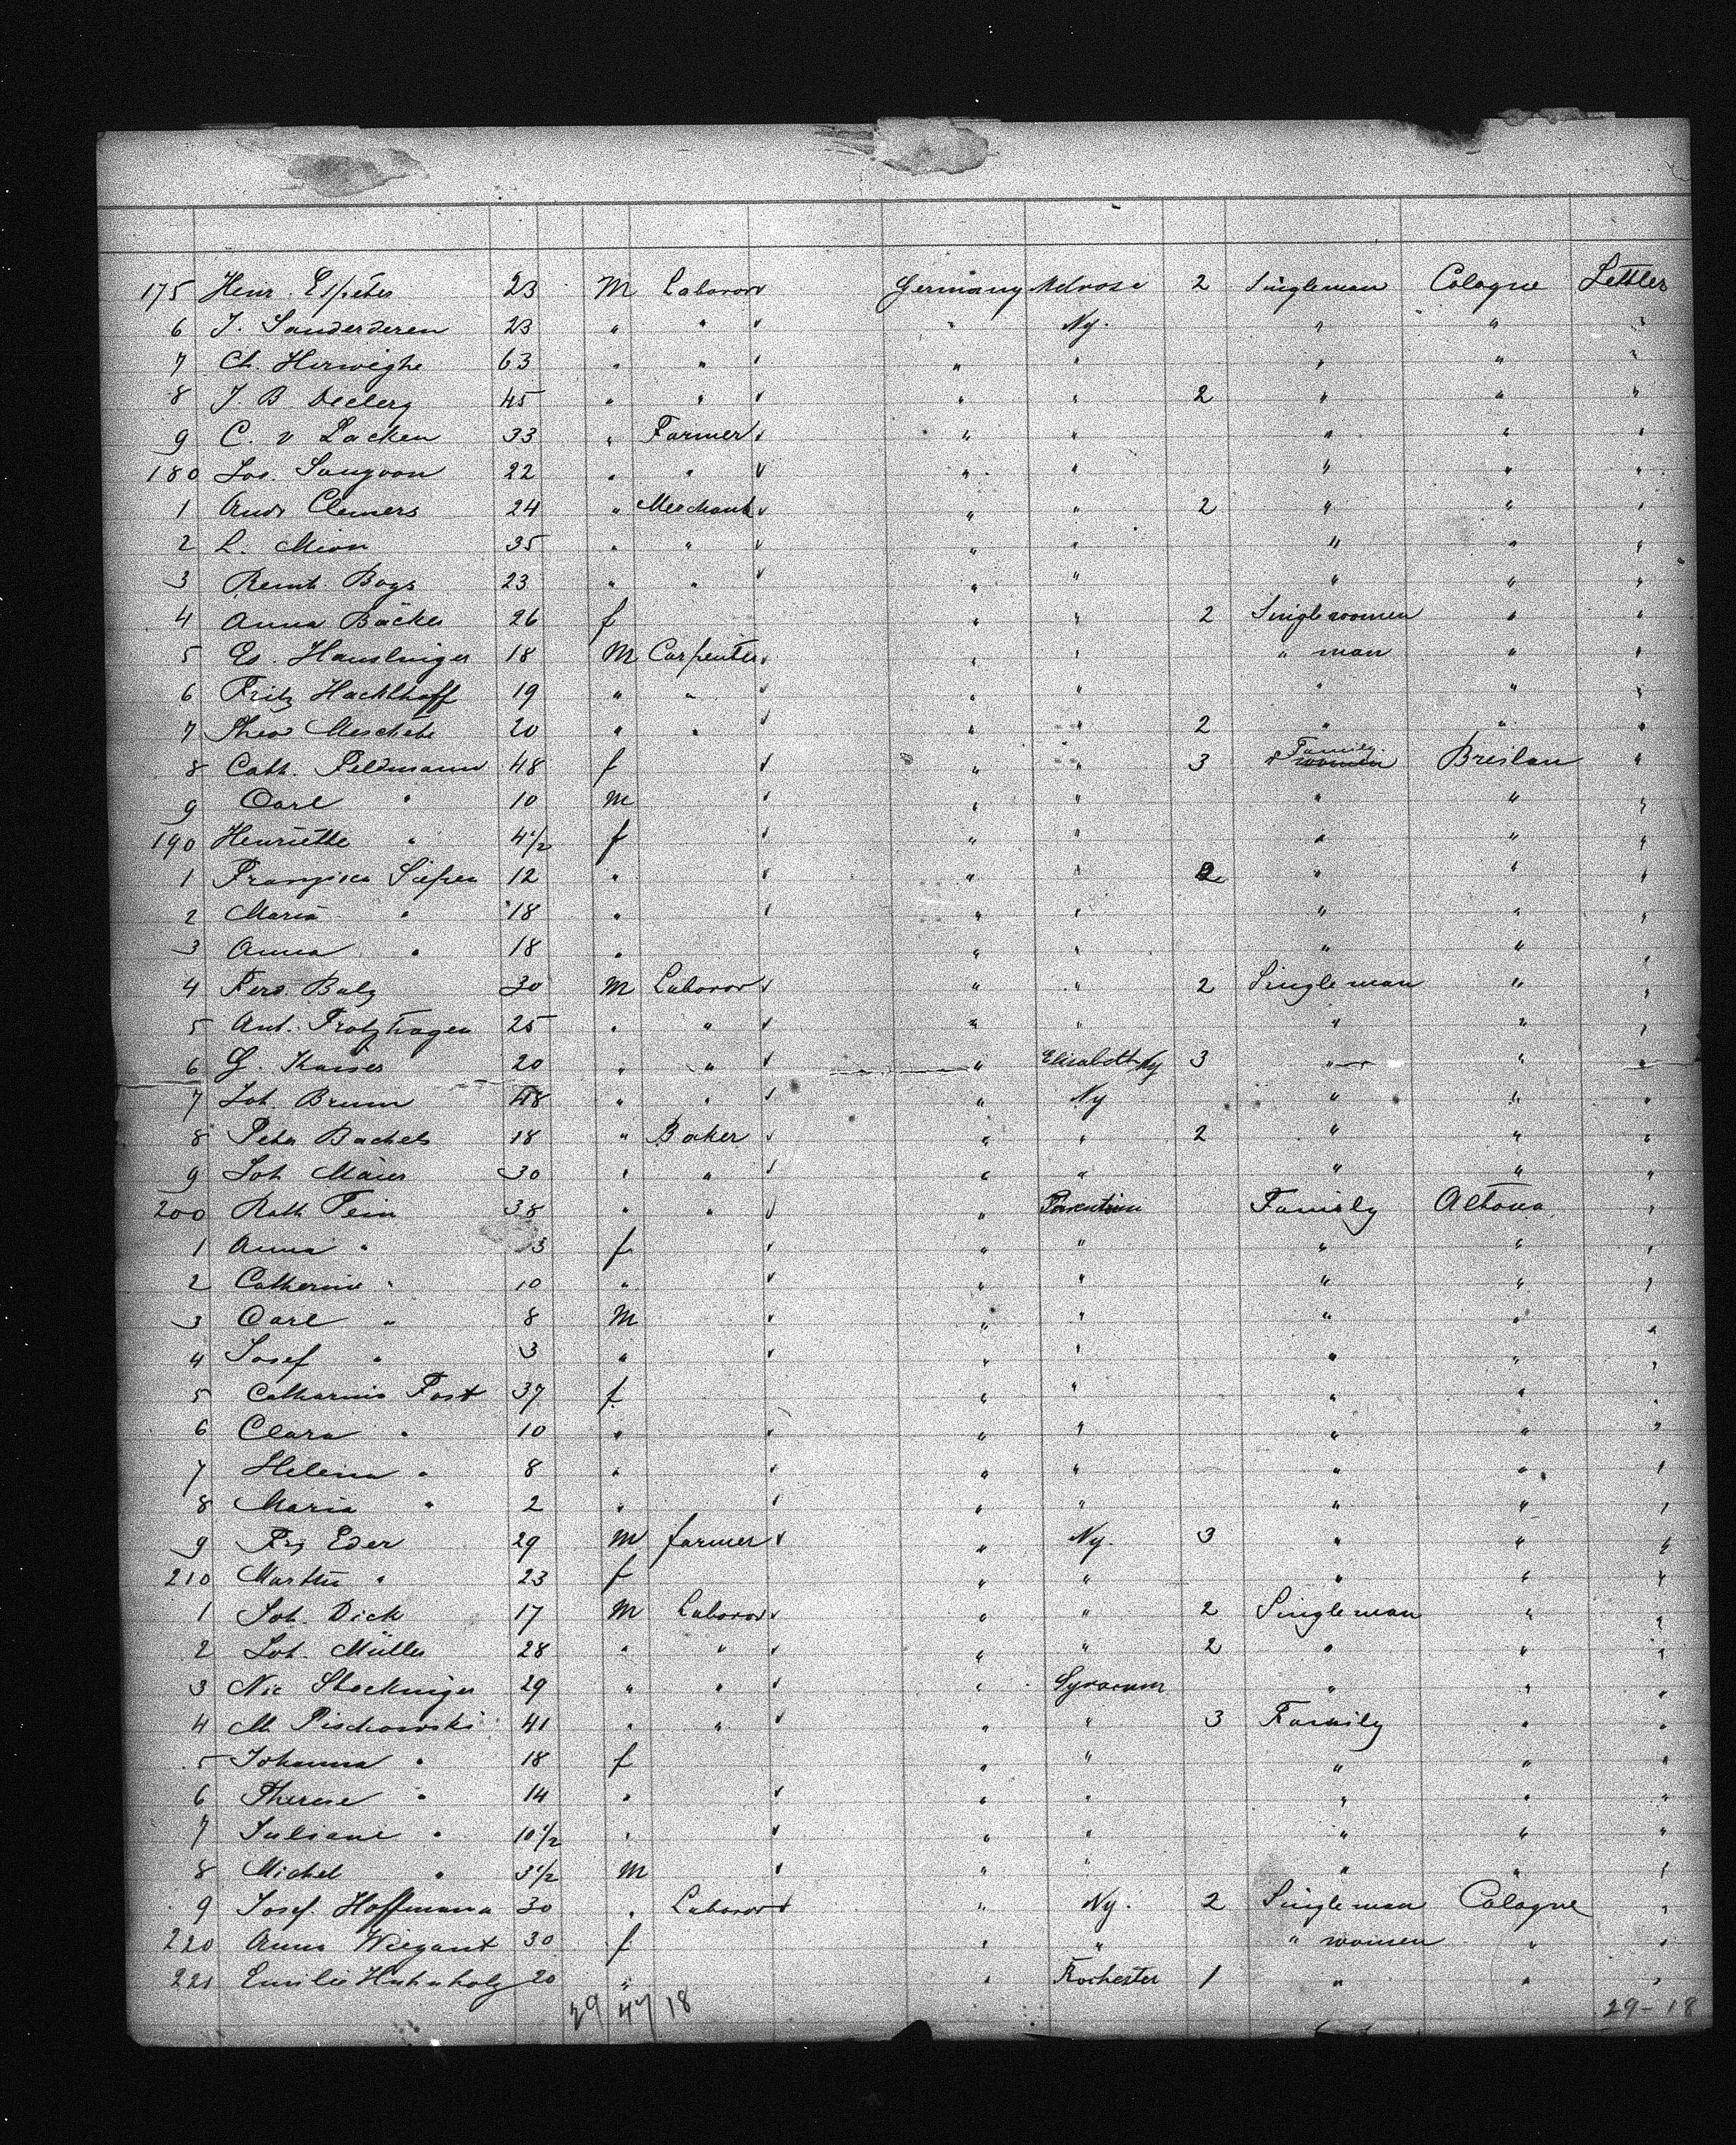 175 Henr. Espeter 23 M Laboror Germany Melrose 2 Singleman Cologne Settler
6 J. Sanderderen 23 " " " Ny. " " "
7 Ch. Herwighe 63 " " " " " " "
8 J. B. Declerg 45 " " " " 2 " " "
9 C. v Lacken 33 " Farmer " " " " "
180 Jos. 22 " " " " " " "
1 Andr Clemers 24 " Merchant " " 2 " " "
2 L. Mion 35 " " " " " " "
3 Remb. Boys 23 " " " " " " "
4 Anna Bäcker 26 f " " 2 Single women " "
5 Es. Hauslinger 18 M Carpenter " " " man " "
6 Fritz Hackhoff 19 " " " " " " "
7 Theod Meschede 20 " " " " 2 " " "
8 Cath. Feldmann 48 f " " 3 Family Breslau "
9 Carl " 10 M " " " " "
190 Henriette " 4 1/2 f " " " " "
1 Franziska Siepen 12 " " " 2 " " "
2 Maria " 18 " " " " " "
3 Anna " 18 " " " " " "
4 Ferd. Balz 30 M Laboror " " 2 Single man " "
5 Ant. Frotzhagen 25 " " " " " " "
6 G. Kaiser 20 " " " Elisabeth Ny 3 " " "
7 Joh. Brunn 48 " " " Ny " " "
8 Peter Bachels 18 " Baker " " 2 " " "
9 Joh Maier 30 " " " " " " "
200 Rath Fein 38 " " " Family Altona "
1 Anna " 3 f " " " " "
2 Catherine " 10 " " " " " "
3 Carl " 8 M " " " " "
4 Josef " 3 " " " " " "
5 Catharina Fost 37 f " " " " "
6 Clara " 10 " " " " " "
7 Helena " 8 " " " " " "
8 Maria " 2 " " " " " "
9 Frz Eder 29 M farmer " Ny. 3 " " "
210 Martha " 23 f " " " " "
1 Joh. Dick 17 M Laboror " " 2 Single man " "
2 Joh. Müller 28 " " " " 2 " " "
3 Nic Stockinger 29 " " " " " "
4 M. Pischowski 41 " " " " 3 Family " "
5 Johanna " 18 f " " " " "
6 Therese " 14 " " " " " "
7 Juliane " 10 1/2 " " " " " "
8 Michel " 3 1/2 M " " " " "
9 Josef. Hoffmann 30 " Laboror " Ny. 2 Single man Cologne "
220 Anna Wiegant 30 f " " " women " "
221 Emilie Hahnholz 20 " " Rochester 1 " " "
29 47 18 29-18